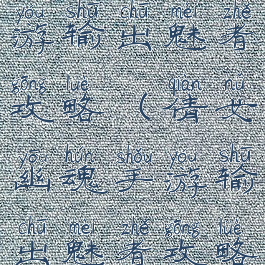 yóu shū chū mèi zhě
游输出魅者
gōng lüè qiàn nǚ
攻略（倩女
yōu hún shǒu yóu shū
幽魂手游输
chū mèi zhě gōng lüè
出魅者攻略